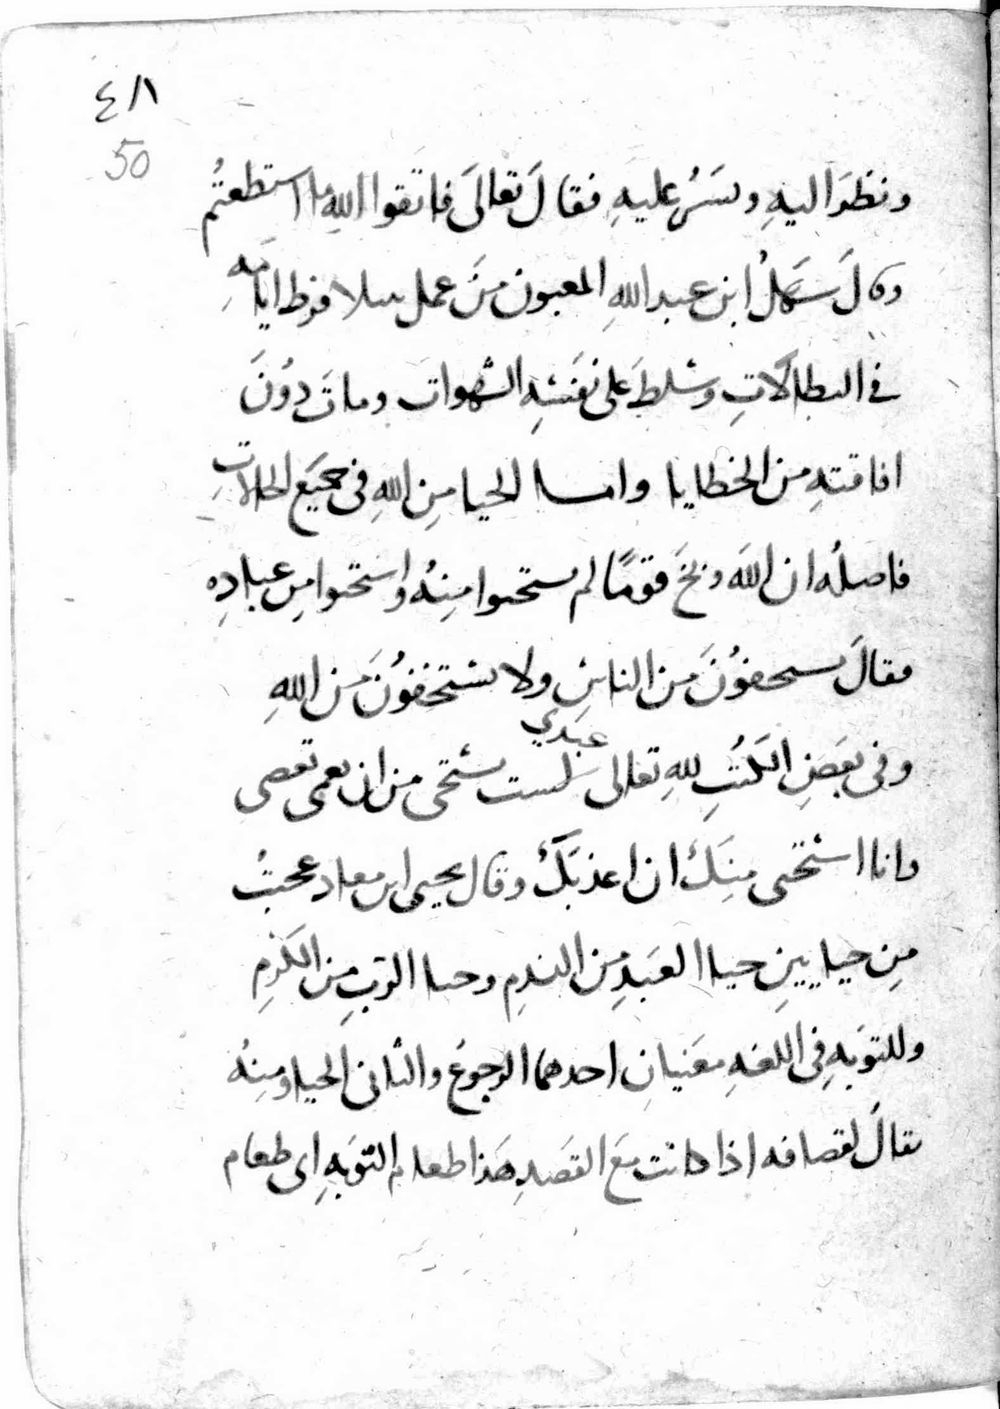 ٤٨
50
ونظرَ اليهِ وستَرُ عليهِ فقالَ تعالىَ فاتقوا الله ما استطعتُم
وقالَ سَهلُ ابن عبد اللهِ المغبون منَ عمل بلا فرط ايامهِ
في البطالاتِ وسلطَ على نفسِهِ الشهوات وماتَ دوُنَ
افاقتهِ من الخطايا واما الحيا مِن اللهِ في جميَع الحالاتِ
فاصلُه ان اللهَ وبَّخَ قومًا لم يستحيوا مِنُه واستحيوا مِن عبادِه
فقالَ يستخفوُنَ منَ الناسِ ولا يستخفوُنَ منَ اللهِ
وفى بعَضِ الكُتبِ للهِ تعالى عبَدي لست تستحى من ان تعصى
وانا استحى مِنكَ ان اعذبَكَ وقال يحيى ابن معاد عجبتُ
مِن حيايينِ حيا العبَدِ مِن الندمِ وحيا الربِ مِن الكرَمِ
وللتوبَهِ في اللغهِ معَنيانِ احدهما الرجوعُ والثانى الحيا ومِنُه
يقالَ لقصافه اذا كانت معَ القصَدِ هَذا طعام التوبَهِ اى طعام